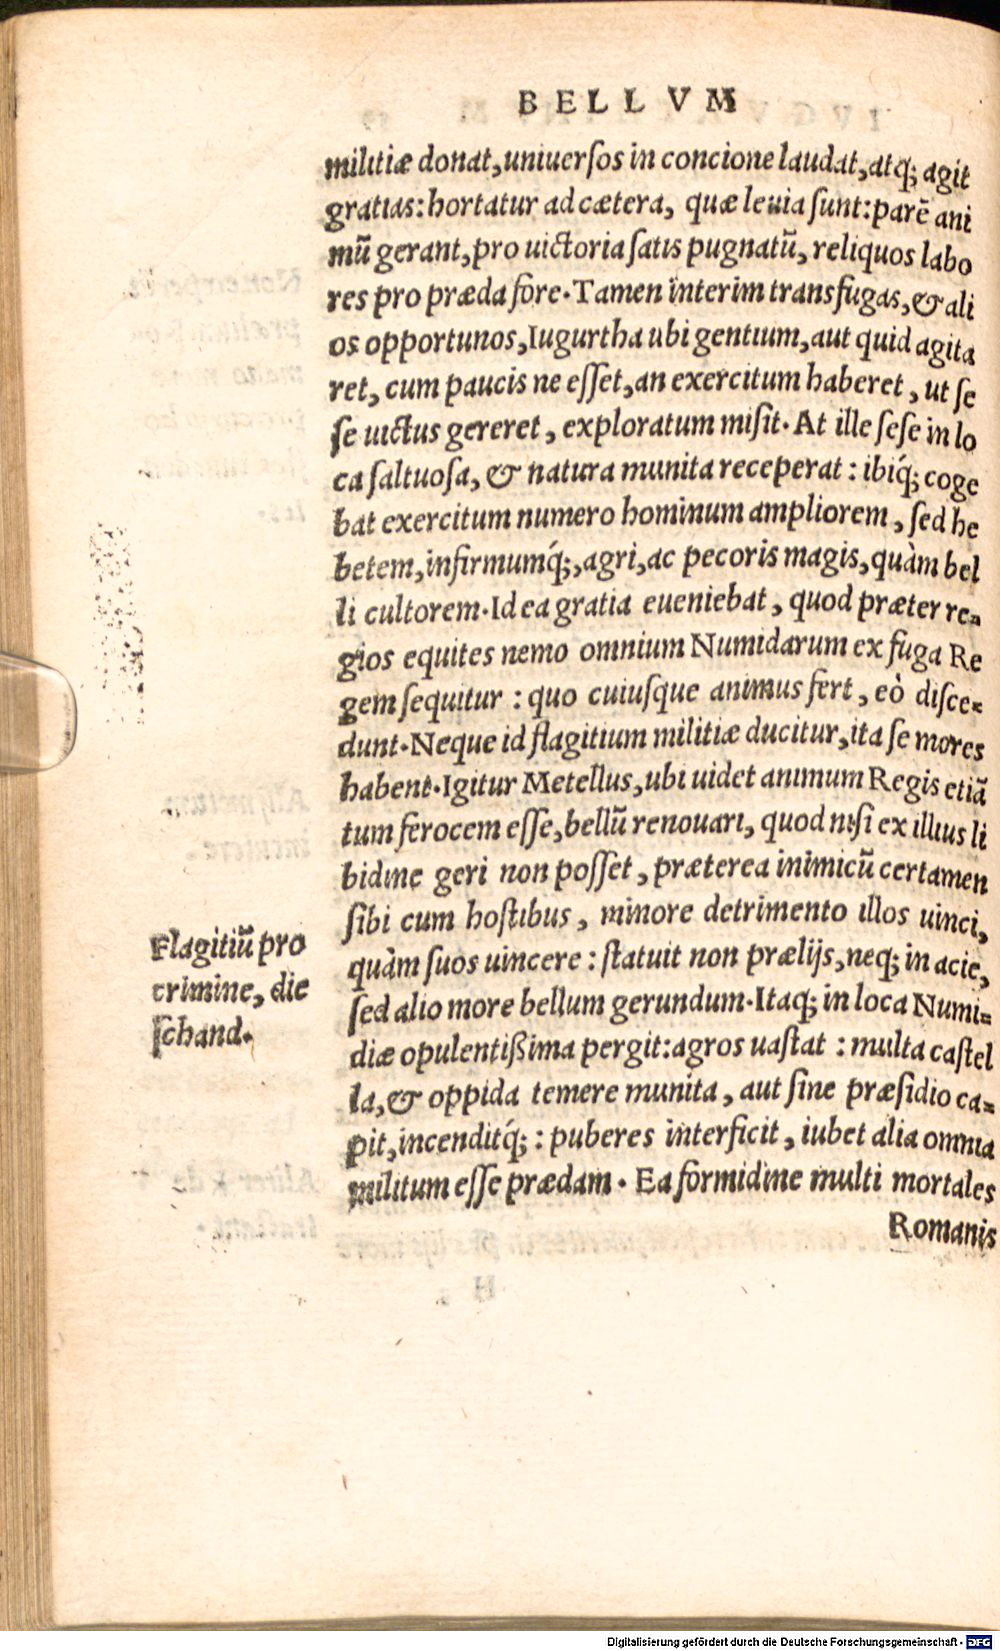 BELLVM
militiæ donat, uniuerſos in concione laudat, atq́; agit
gratias: hortatur ad cætera, quæ leuia ſunt: parē ani
mū gerant, pro uictoria ſatis pugnatū, reliquos labo
res pro præda fore. Tamen interim transfugas, & ali
os opportunos, Iugurtha ubi gentium, aut quid agita
ret, cum paucis ne eſſet, an exercitum haberet, ut ſe
ſe uictus gereret, exploratum miſit. At ille ſeſe in lo
ca ſaltuoſa, & natura munita receperat: ibiq́; coge
bat exercitum numero hominum ampliorem, ſed he
betem, infirmumq́;, agri, ac pecoris magis, quàm bel
li cultorem. Id ea gratia eueniebat, quod præter re-
gios equites nemo omnium Numidarum ex fuga Re
gem ſequitur: quo cuiuſque animus fert, eò diſce-
dunt. Neque id flagitium militiæ ducitur, ita ſe mores
habent. Igitur Metellus, ubi uidet animum Regis etiā
tum ferocem eſſe, bellū renouari, quod niſi ex illius li
bidine geri non poſſet, præterea inimicū certamen
ſibi cum hoſtibus, minore detrimento illos uinci,
quàm ſuos uincere: ſtatuit non prælijs, neq; in acie,
ſed alio more bellum gerundum. Itaq; in loca Numi-
diæ opulentißima pergit: agros uaſtat: multa caſtel
la, & oppida temere munita, aut ſine præſidio ca-
pit, incenditq́;: puberes interficit, iubet alia omnia
militum eſſe prædam. Ea formidine multi mortales
Romanis
Flagitiū pro
crimine, die
ſchand.
Digitalisierung gefördert durch die Deutsche Forschungsgemeinschaft - DFG